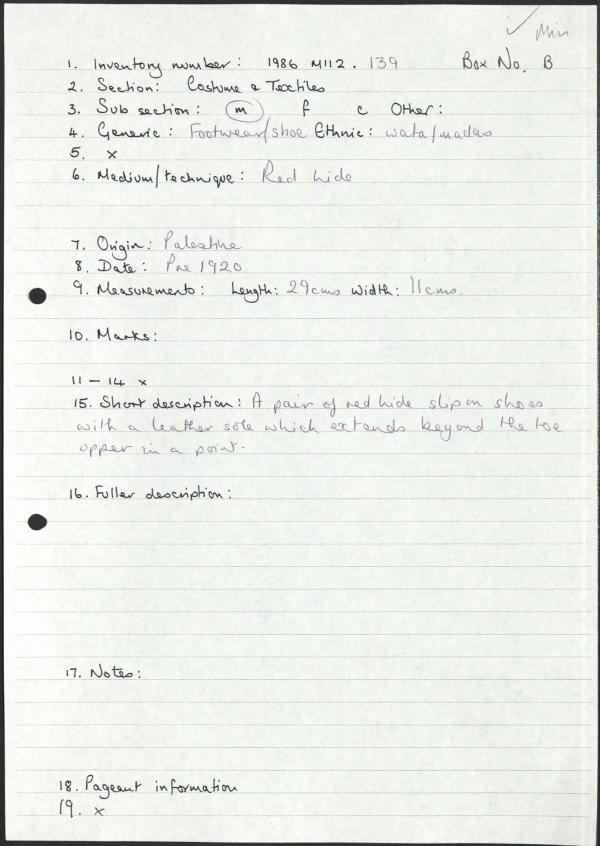 ✓ Min
1. Inventory number: 1986 M112.139 Box No. B
2. Section: Costume & Textiles
3. Sub section: m f c Other:
4. Generic: Footwear/shoe Ethnic: wata/madas
5. x
6. Medium/technique: Red hide
7. Origin: Palestine
8. Date: Pre 1920
9. Measurements: Length: 29cms Width: 11cms.
10. Marks:
11 – 14 x
15. Short description: A pair of red hide slip on shoes
with a leather sole which extends beyond the toe
upper in a point.
16. Fuller description:
17. Notes:
18. Pageant information
19. x